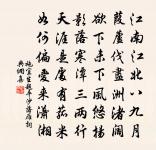 江南江北八九月
葭蘆伐盡洲渚闊
欲下未下風悠揚
影落寒潭三兩行
天涯是處有菰米
如何偏愛來瀟湘
施宜生題平沙落雁